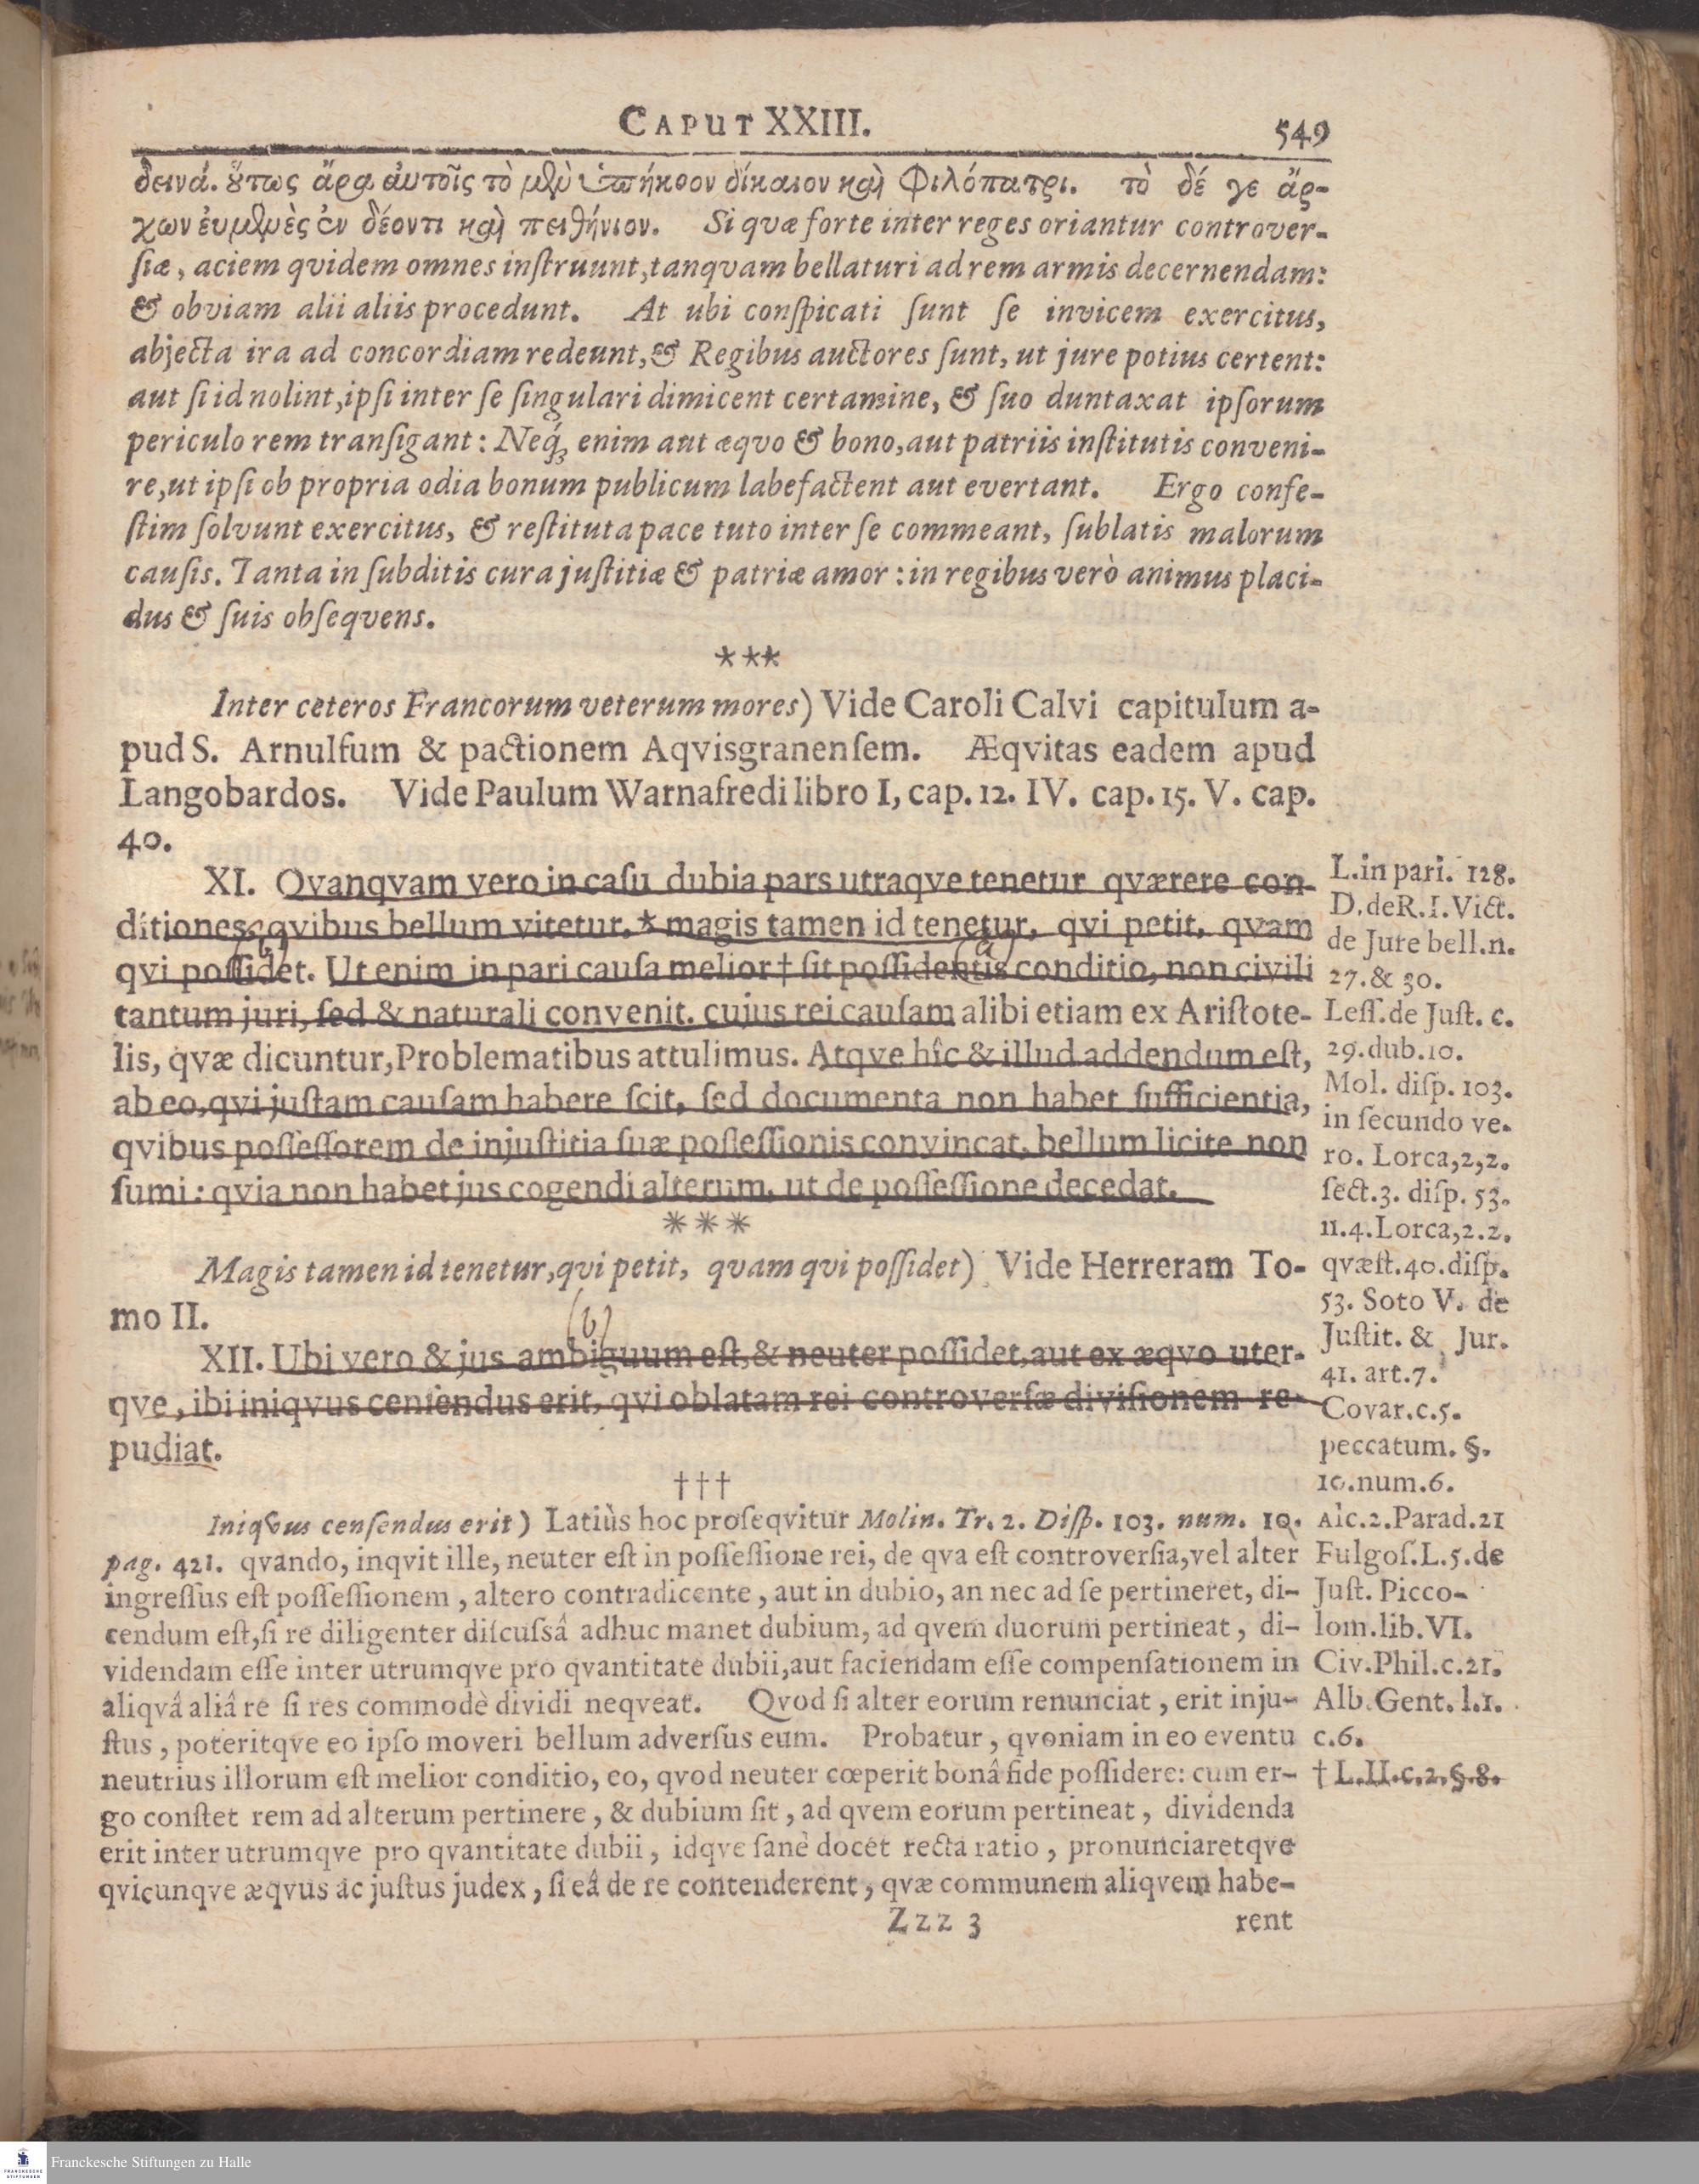 CAPUT XXIII. 549
δεινά. ὅτως ἄρα ἀυτοῖς τὸ μὲν ὑπήκοον δίκαιον καὶ Φιλόπατρι. τὸ δέ γε ἄρ-
χων ἐυμενὲς ἐν δέοντι καὶ πειθήνιον. Si quæ forte inter reges oriantur controver-
ſiæ, aciem qvidem omnes inſtruunt, tanqvam bellaturi ad rem armis decernendam:
& obviam alii aliis procedunt. At ubi conſpicati ſunt ſe invicem exercitus,
abjecta ira ad concordiam redeunt, & Regibus auctores ſunt, ut jure potius certent:
aut ſi id nolint, ipſi inter ſe ſingulari dimicent certamine, & ſuo duntaxat ipſorum
periculo rem tranſigant: Neq́; enim aut æquo & bono, aut patriis inſtitutis conveni-
re, ut ipſi ob propria odia bonum publicum labefactent aut evertant. Ergo confe-
ſtim ſolvunt exercitus, & reſtituta pace tuto inter ſe commeant, ſublatis malorum
cauſis. Tanta in ſubditis cura juſtitiæ & patriæ amor: in regibus verò animus placi-
dus & ſuis obſeqvens.
***
Inter ceteros Francorum veterum mores) Vide Caroli Calvi capitulum a-
pud S. Arnulfum & pactionem Aqvisgranenſem. Æqvitas eadem apud
Langobardos. Vide Paulum Warnafredi libro I, cap. 12. IV. cap. 15. V. cap.
40.
XI. Qvanqvam vero in caſu dubia pars utraqve tenetur qværere con-
ditiones, qvibus bellum vitetur, * magis tamen id tenetur, qvi petit, qvam
(a) (a)
qvi poſſidet. Ut enim in pari cauſa melior † ſit poſſidentis conditio, non civili
tantum juri, ſed & naturali convenit. cujus rei cauſam alibi etiam ex Ariſtote-
lis, qvæ dicuntur, Problematibus attulimus. Atqve hîc & illud addendum eſt,
ab eo, qvi juſtam cauſam habere ſcit, ſed documenta non habet ſufficientia,
qvibus poſſeſſorem de injuſtitia ſuæ poſſeſſionis convincat, bellum licite non
ſumi: qvia non habet jus cogendi alterum, ut de poſſeſſione decedat.
***
Magis tamen id tenetur, qvi petit, qvam qvi poſſidet) Vide Herreram To-
mo II.
(b)
XII. Ubi vero & jus ambiguum eſt, & neuter poſſidet, aut ex æqvo uter-
qve, ibi iniqvus cenſendus erit, qvi oblatam rei controverſæ diviſionem re-
pudiat.
†††
Iniqvus cenſendus erit) Latiùs hoc proſeqvitur Molin. Tr. 2. Diſp. 103. num. 10.
pag. 421. qvando, inqvit ille, neuter eſt in poſſeſſione rei, de qva eſt controverſia, vel alter
ingreſſus eſt poſſeſſionem, altero contradicente, aut in dubio, an nec ad ſe pertineret, di-
cendum eſt, ſi re diligenter diſcuſsâ adhuc manet dubium, ad qvem duorum pertineat, di-
videndam eſſe inter utrumqve pro qvantitate dubii, aut faciendam eſſe compenſationem in
aliqvâ aliâ re ſi res commodè dividi neqveat. Qvod ſi alter eorum renunciat, erit inju-
ſtus, poteritqve eo ipſo moveri bellum adverſus eum. Probatur, qvoniam in eo eventu
neutrius illorum eſt melior conditio, eo, qvod neuter cœperit bonâ fide poſſidere: cum er-
go conſtet rem ad alterum pertinere, & dubium ſit, ad qvem eorum pertineat, dividenda
erit inter utrumqve pro qvantitate dubii, idqve ſanè docet recta ratio, pronunciaretqve
qvicunqve æqvus ac juſtus judex, ſi eâ de re contenderent, qvæ communem aliqvem habe-
Zzz 3 rent
L. in pari. 128.
D. de R. I. Vict.
de Jure bell. n.
27. & 30.
Leſſ. de Juſt. c.
29. dub. 10.
Mol. diſp. 103.
in ſecundo ve-
ro. Lorca, 2, 2.
ſect. 3. diſp. 53.
11. 4. Lorca, 2. 2.
qvæſt. 40. diſp.
53. Soto V. de
Juſtit. & Jur.
41. art. 7.
Covar. c. 5.
peccatum. §.
10. num. 6.
Alc. 2. Parad. 21
Fulgoſ. L. 5. de
Juſt. Picco-
lom. lib. VI.
Civ. Phil. c. 21.
Alb. Gent. l. 1.
c. 6.
† L. II. c. 2. §. 8.
FRANCKESCHE STIFTUNGEN
Franckesche Stiftungen zu Halle